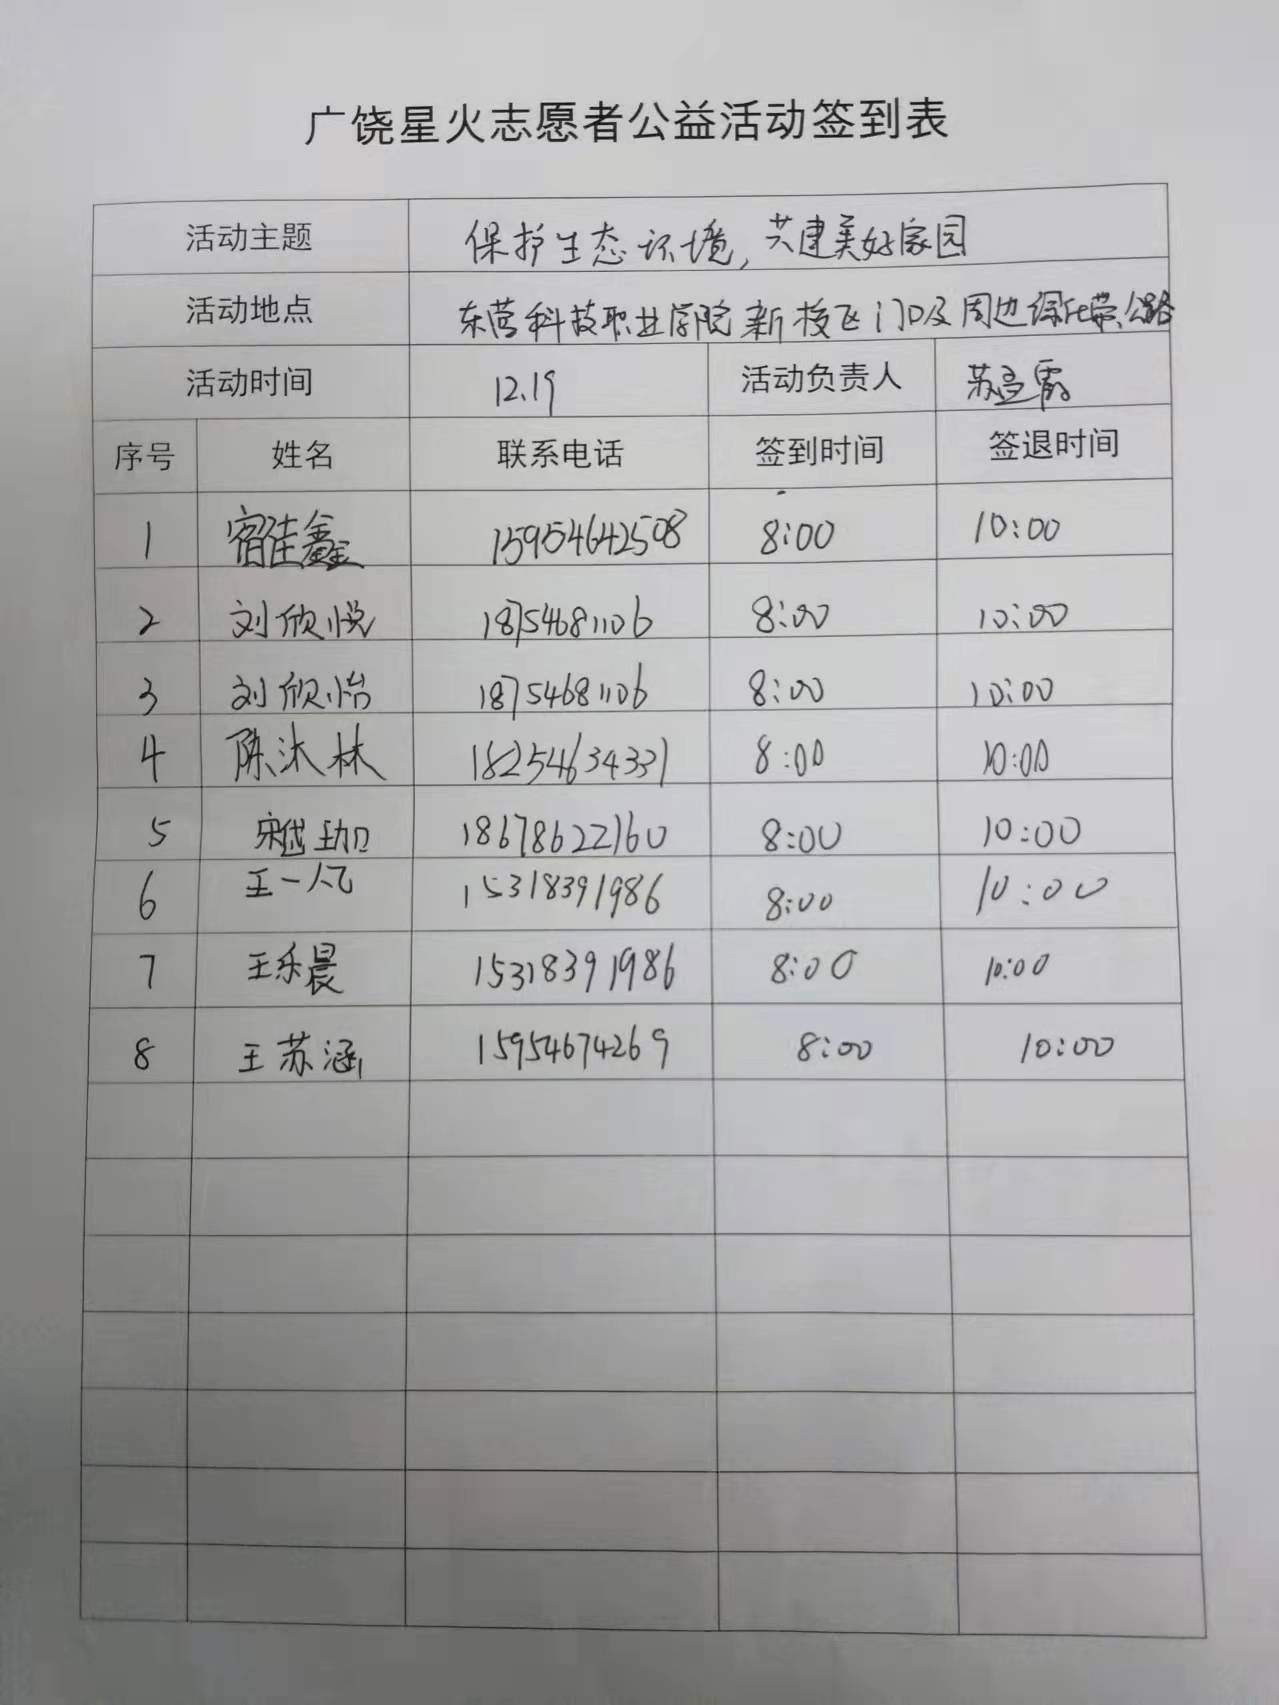 广饶星火志愿者公益活动签到表
活动主题 保护生态环境,共建美好家园
活动地点 东营科技职业学院新校区门口及周边绿化带、公路
活动时间 12.19 活动负责人 苏孟霞
序号 姓名 联系电话 签到时间 签退时间
1 宿佳鑫 15954642508 8:00 10:00
2 刘欣悦 18754681106 8:00 10:00
3 刘欣怡 18754681106 8:00 10:00
4 陈沐林 18254634331 8:00 10:00
5 宋岱珈 18678622160 8:00 10:00
6 王一 15318391986 8:00 10:00
7 王乐晨 15318391986 8:00 10:00
8 王苏涵 15954674269 8:00 10:00